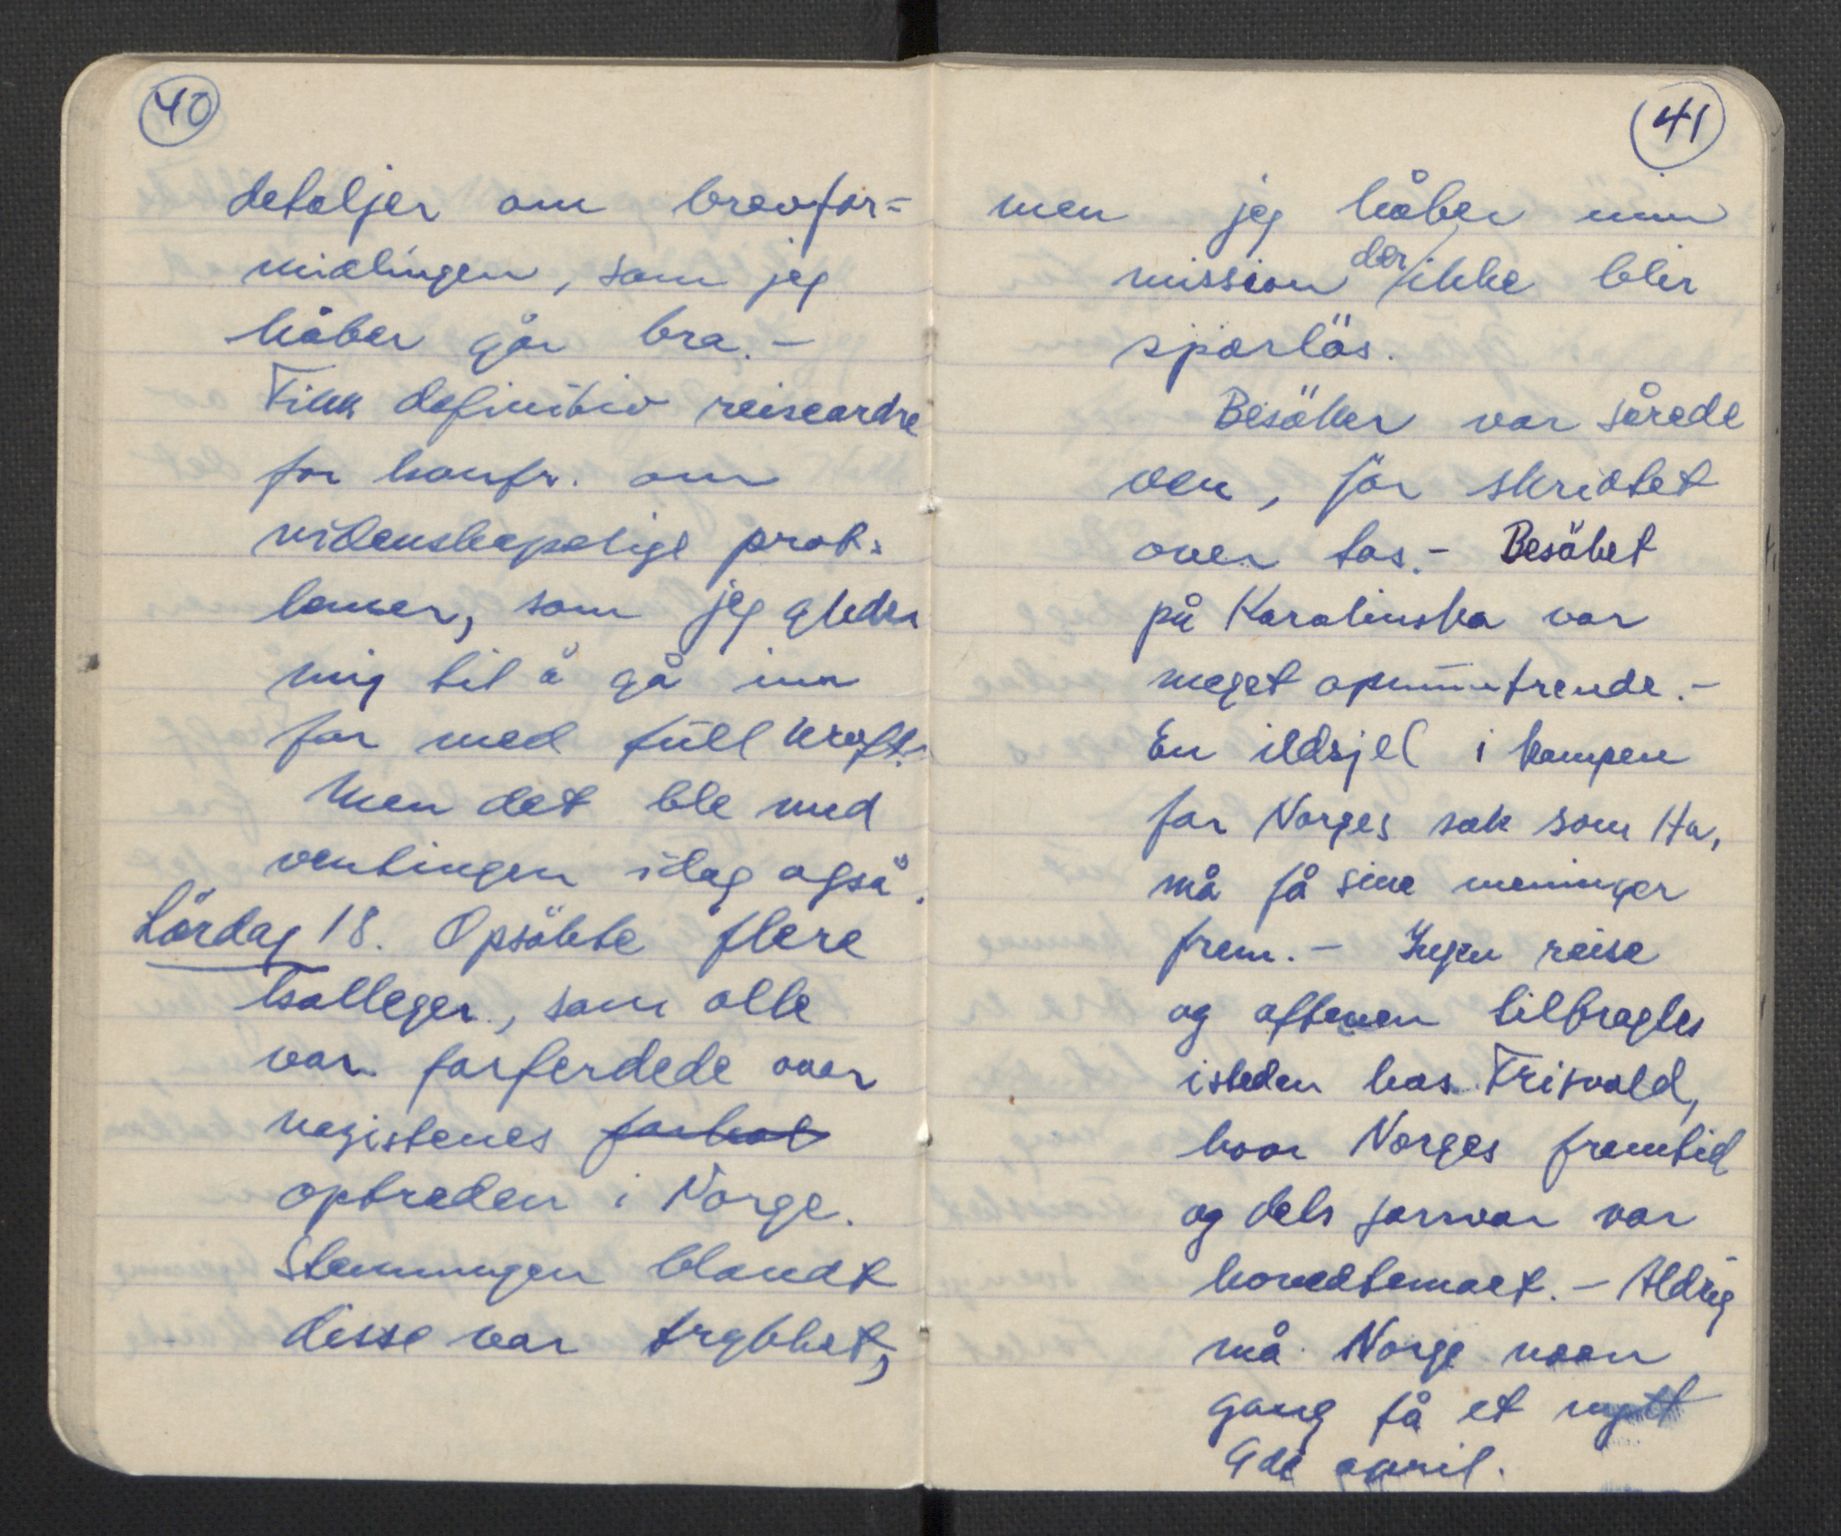 40
detaljer om brevfor=
midlingen, som jeg
håber går bra. -
Fikk definitiv reiseordre
for konfr. om
videnskapelige prob=
lemer, som jeg gleder
mig til å gå inn
for med full kraft.
Men det ble med
ventingen idag også.
Lördag 18. Opsökte flere
kolleger, som alle
var forferdede over
nazistenes
optreden i Norge.
Stemningen blandt
disse var trykket,
41
men jeg håber min
mission der ikke blir
sporlös.
Besöker vor sårede
ven, för skridtet
over tas. - Besöket
på Karolinska var
meget opmuntrende. -
En ildsjel i kampen
for Norges sak som Ha,
må få sine meninger
frem. - Ingen reise
og aftenen tilbragtes
isteden hos Frisvold,
hvor Norges fremtid
og dets forsvar var
hovedtemaet. - Aldrig
må Norge noen
gang få et nytt
9de april.